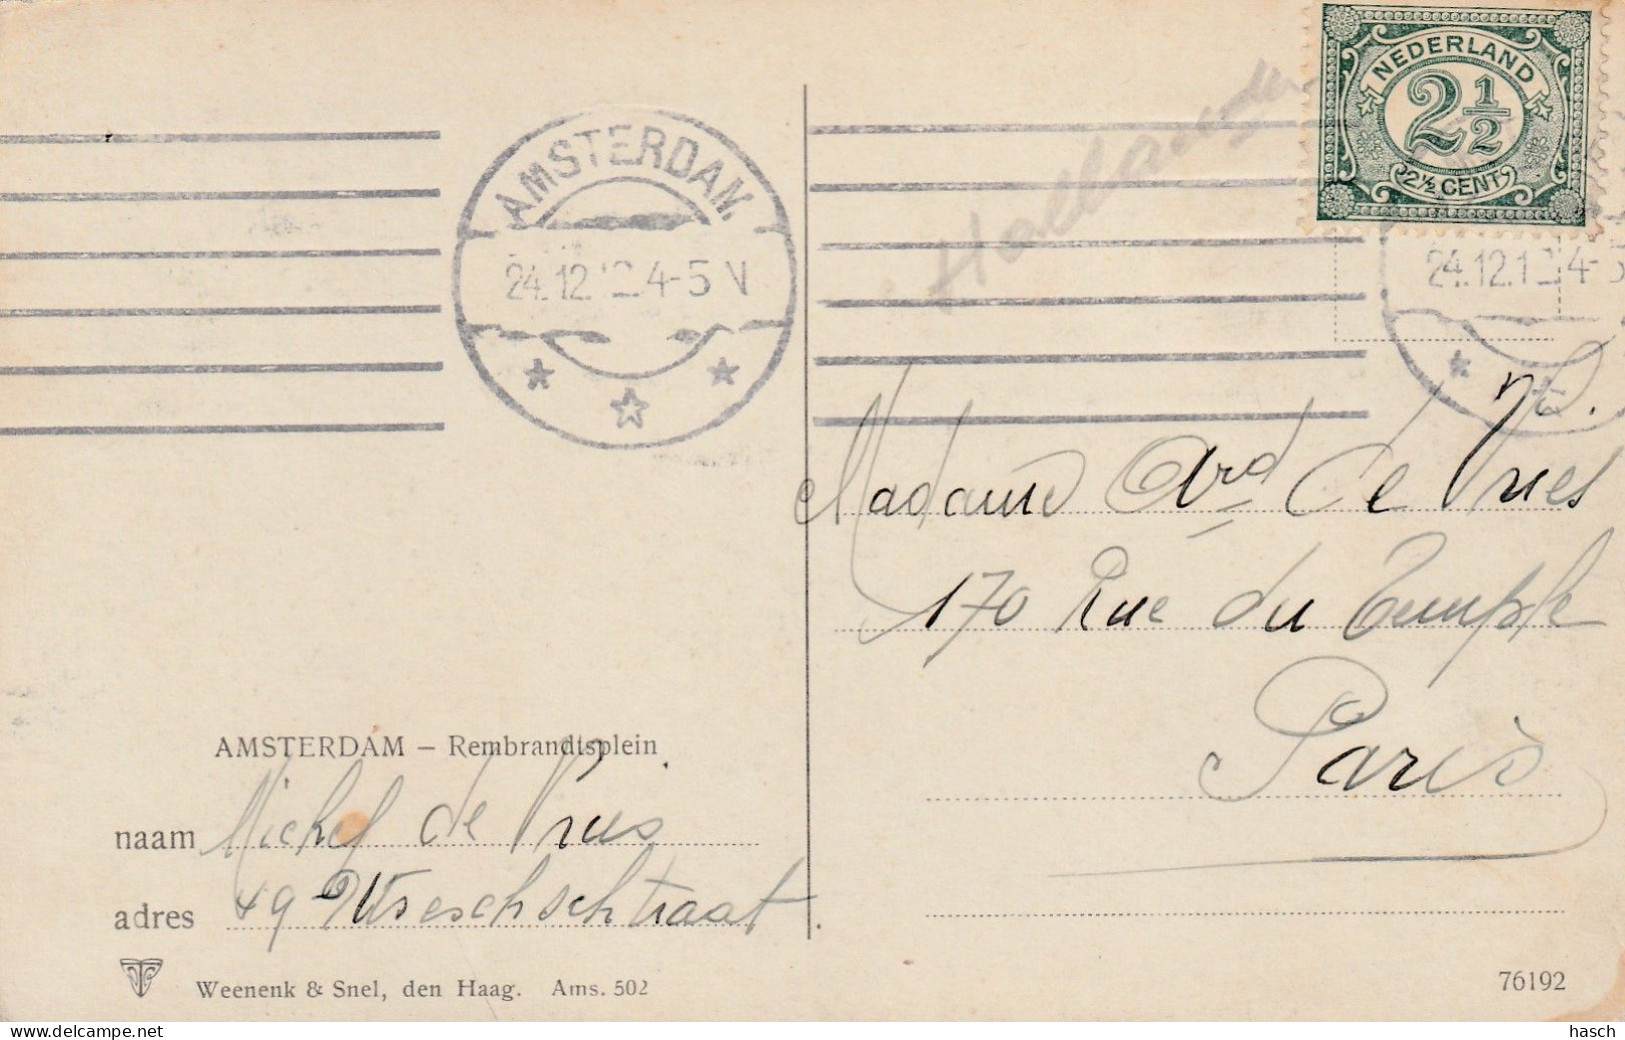 NEDERLAND
2½
2½ CENT
AMSTERDAM
24.12.12 4-5 N
24.12.12 4-5
Madame Ard de Vries
170 Rue du Temple
Paris
AMSTERDAM – Rembrandtsplein
naam Michel de Vries
adres 49
Weenenk & Snel, den Haag. Ams. 502
76192
delcampe.net
hasch